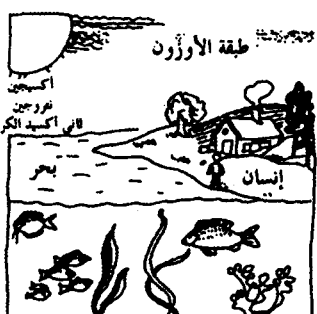 طبقة الأوزون
أكسيجين
نتروجين
ثاني أكسيد الكر
عشب
عشب
بحر
إنسان